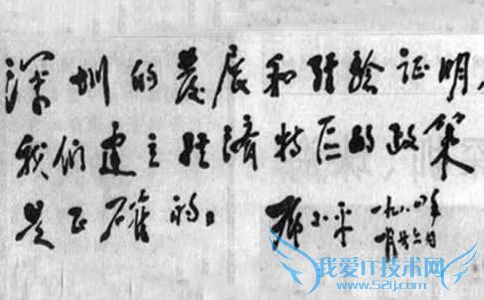 深圳的发展和经验证明，
我们建立经济特区的政策
是正确的。
邓小平 一九八四年
一月廿六日
我爱IT技术网
www.52ij.com